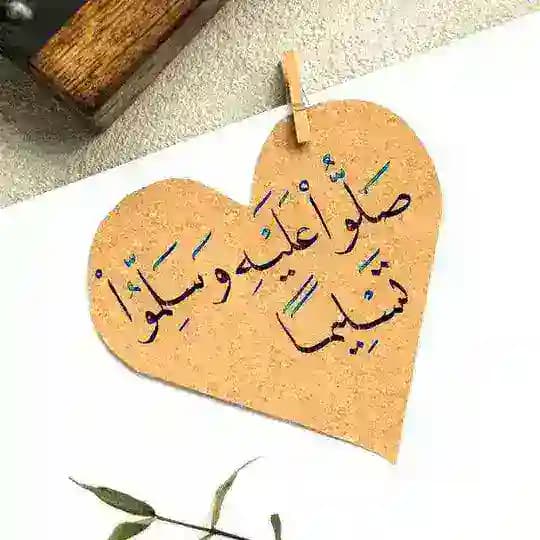 صَلُّوا عَلَيْهِ وَ سَلِّمُوا
تَسْلِيمًا